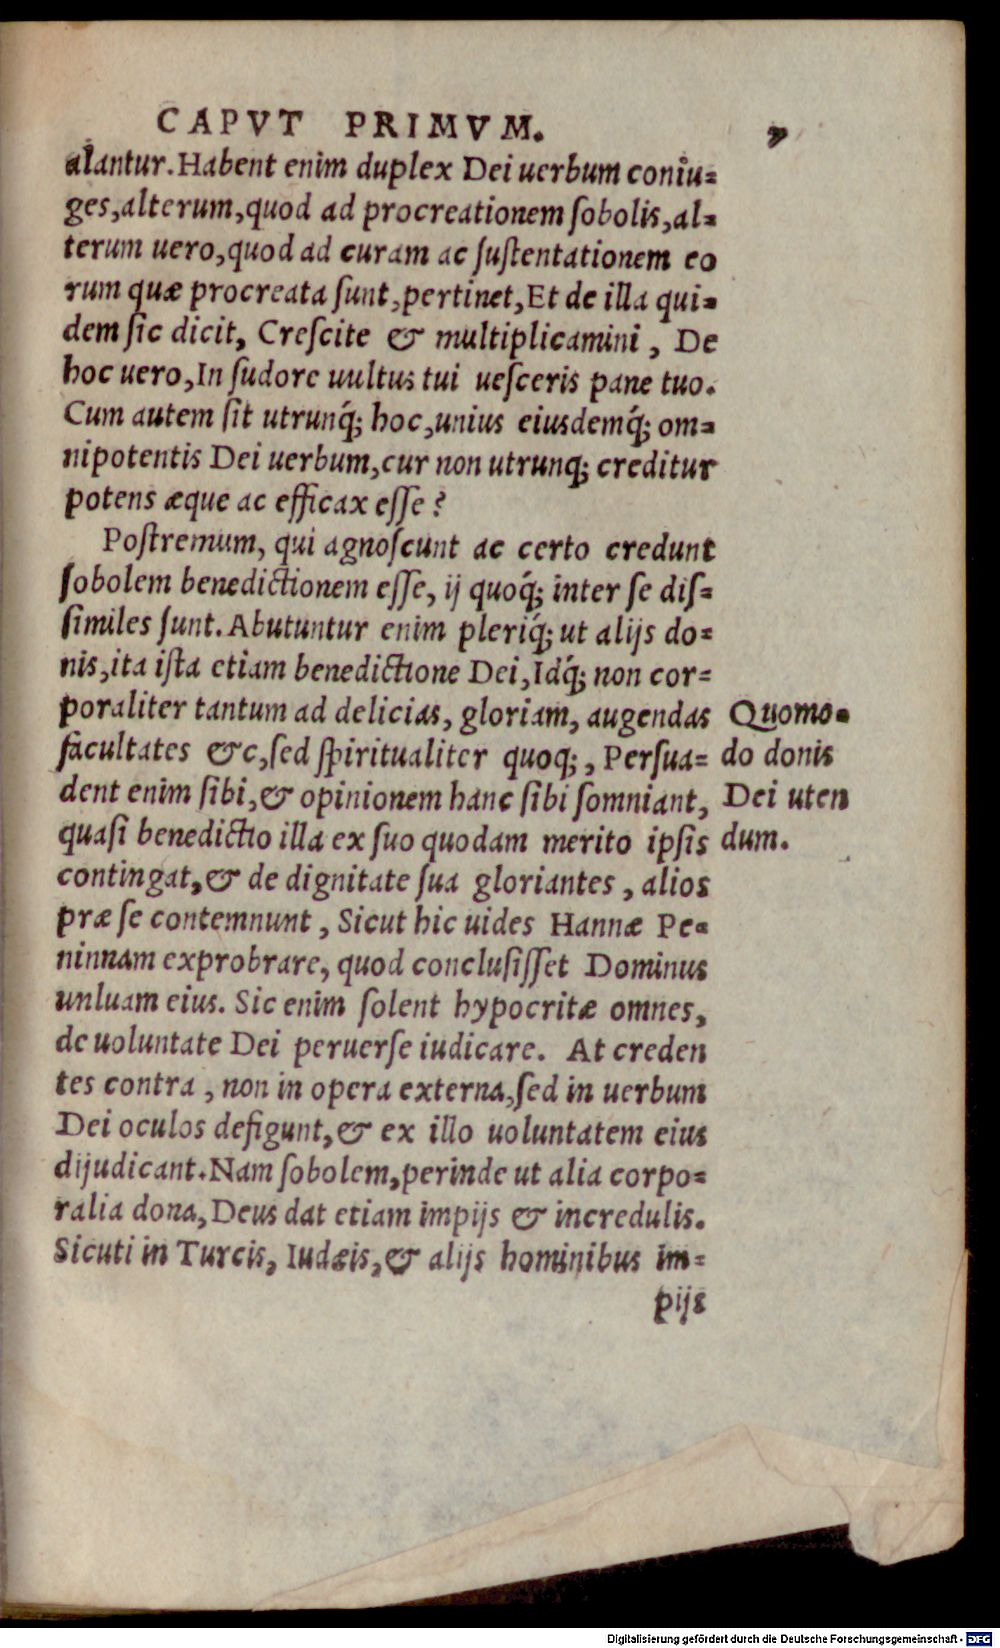 CAPVT PRIMVM. 7
alantur. Habent enim duplex Dei uerbum coniu-
ges, alterum, quod ad procreationem ſobolis, al-
terum uero, quod ad curam ac ſuſtentationem eo
rum quæ procreata ſunt, pertinet, Et de illa qui-
dem ſic dicit, Creſcite & multiplicamini, De
hoc uero, In ſudore uultus tui ueſceris pane tuo.
Cum autem ſit utrunq́; hoc, unius eiusdemq́; om-
nipotentis Dei uerbum, cur non utrunq; creditur
potens æque ac efficax eſſe?
Poſtremum, qui agnoſcunt ac certo credunt
ſobolem benedictionem eſſe, ij quoq́; inter ſe diſ-
ſimiles ſunt. Abutuntur enim pleriq́; ut alijs do-
nis, ita iſta etiam benedictione Dei, Idq́; non cor-
poraliter tantum ad delicias, gloriam, augendas
facultates &c, ſed ſpiritualiter quoq;, Perſua-
dent enim ſibi, & opinionem hanc ſibi ſomniant,
quaſi benedictio illa ex ſuo quodam merito ipſis
contingat, & de dignitate ſua gloriantes, alios
præ ſe contemnunt, Sicut hic uides Hannæ Pe-
ninnam exprobrare, quod concluſiſſet Dominus
unluam eius. Sic enim ſolent hypocritæ omnes,
de uoluntate Dei peruerſe iudicare. At creden
tes contra, non in opera externa, ſed in uerbum
Dei oculos defigunt, & ex illo uoluntatem eius
dijudicant. Nam ſobolem, perinde ut alia corpo-
ralia dona, Deus dat etiam impijs & incredulis.
Sicuti in Turcis, Iudæis, & alijs hominibus im-
pijs
Quomo-
do donis
Dei uten
dum.
Digitalisierung gefördert durch die Deutsche Forschungsgemeinschaft - DFG